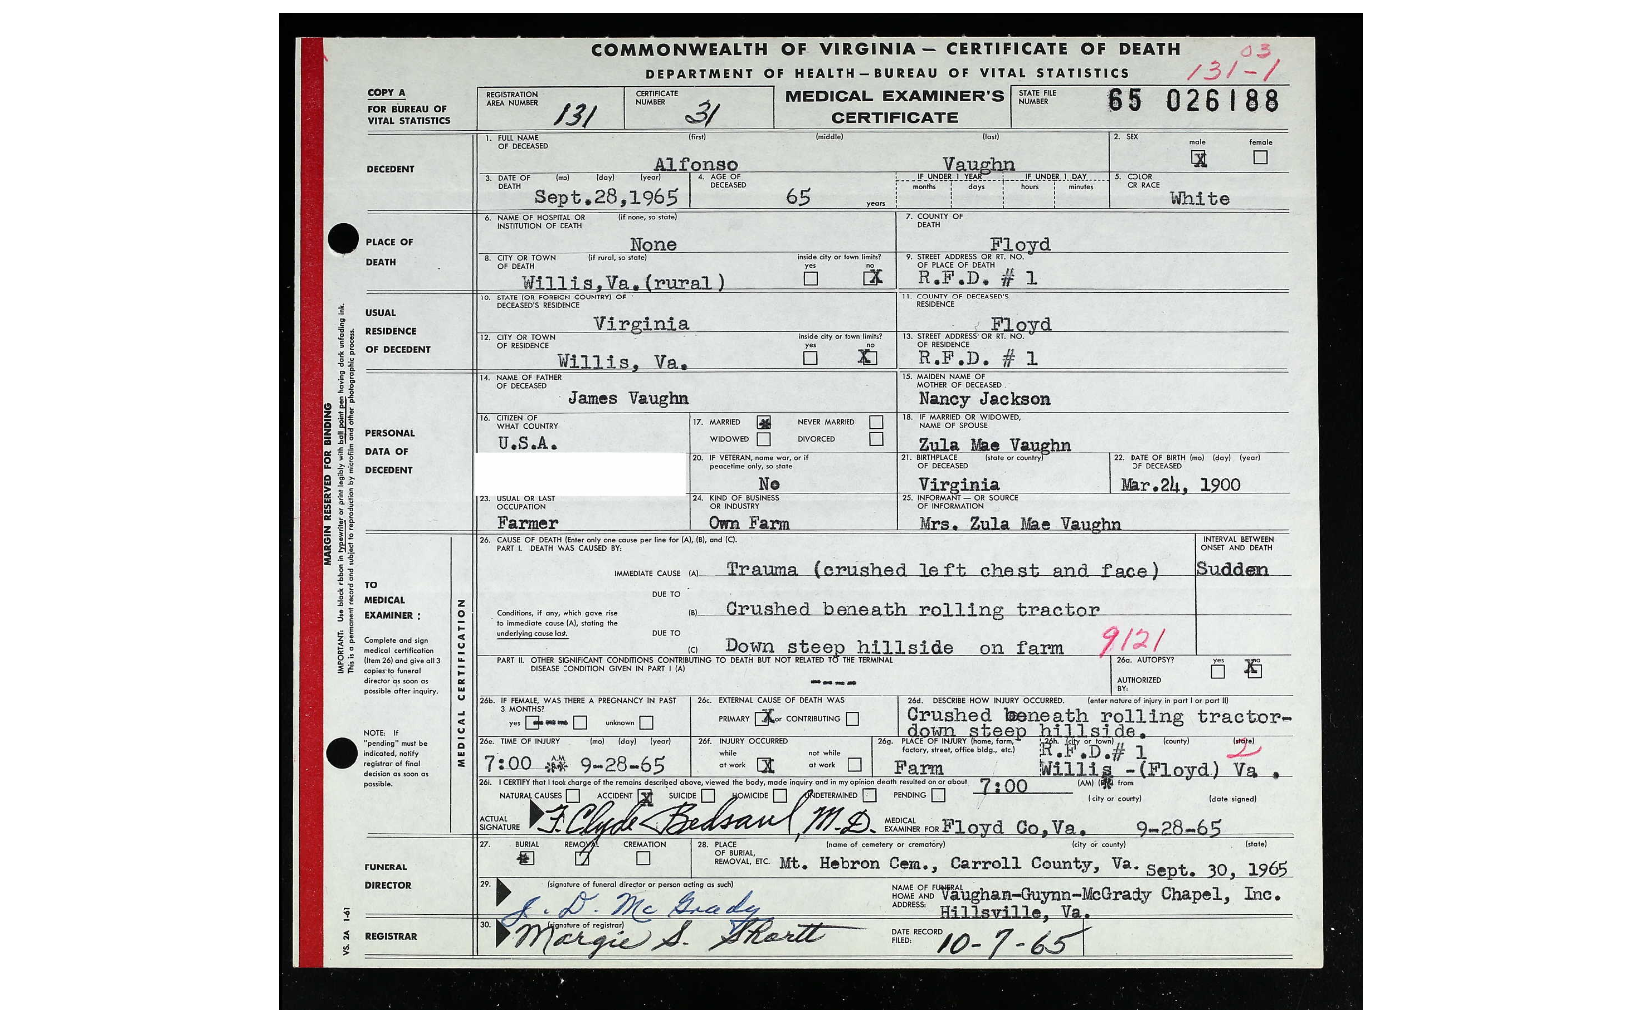 COMMONWEALTH OF VIRGINIA — CERTIFICATE OF DEATH
03
DEPARTMENT OF HEALTH — BUREAU OF VITAL STATISTICS
131-1
COPY A
FOR BUREAU OF
VITAL STATISTICS
REGISTRATION
AREA NUMBER
131
CERTIFICATE
NUMBER
31
MEDICAL EXAMINER'S
CERTIFICATE
STATE FILE
NUMBER
65 026188
DECEDENT
1. FULL NAME (first) (middle) (last)
OF DECEASED
Alfonso Vaughn
2. SEX
male female
X
3. DATE OF (mo) (day) (year)
DEATH
Sept.28,1965
4. AGE OF
DECEASED
65 years
IF UNDER 1 YEAR IF UNDER 1 DAY
months days hours minutes
5. COLOR
OR RACE
White
PLACE OF
DEATH
6. NAME OF HOSPITAL OR (if none, so state)
INSTITUTION OF DEATH
None
7. COUNTY OF
DEATH
Floyd
8. CITY OR TOWN (if rural, so state)
OF DEATH
Willis,Va.(rural)
inside city or town limits?
yes no
X
9. STREET ADDRESS OR RT. NO.
OF PLACE OF DEATH
R.F.D. # 1
USUAL
RESIDENCE
OF DECEDENT
10. STATE (OR FOREIGN COUNTRY) OF
DECEASED'S RESIDENCE
Virginia
11. COUNTY OF DECEASED'S
RESIDENCE
Floyd
12. CITY OR TOWN
OF RESIDENCE
Willis, Va.
inside city or town limits?
yes no
X
13. STREET ADDRESS OR RT. NO.
OF RESIDENCE
R.F.D. # 1
PERSONAL
DATA OF
DECEDENT
14. NAME OF FATHER
OF DECEASED
James Vaughn
15. MAIDEN NAME OF
MOTHER OF DECEASED
Nancy Jackson
16. CITIZEN OF
WHAT COUNTRY
U.S.A.
17. MARRIED NEVER MARRIED
WIDOWED DIVORCED
18. IF MARRIED OR WIDOWED,
NAME OF SPOUSE
Zula Mae Vaughn
20. IF VETERAN, name war, or if
peacetime only, so state
No
21. BIRTHPLACE (state or country)
OF DECEASED
Virginia
22. DATE OF BIRTH (mo) (day) (year)
OF DECEASED
Mar.24, 1900
23. USUAL OR LAST
OCCUPATION
Farmer
24. KIND OF BUSINESS
OR INDUSTRY
Own Farm
25. INFORMANT — OR SOURCE
OF INFORMATION
Mrs. Zula Mae Vaughn
MARGIN RESERVED FOR BINDING
IMPORTANT: Use black ribbon in typewriter or print legibly with ball point pen having dark unfading ink.
This is a permanent record and subject to reproduction by microfilm and other photographic process.
TO
MEDICAL
EXAMINER:
Complete and sign
medical certification
(Item 26) and give all 3
copies to funeral
director as soon as
possible after inquiry.
NOTE: If
"pending" must be
indicated, notify
registrar of final
decision as soon as
possible.
MEDICAL CERTIFICATION
26. CAUSE OF DEATH (Enter only one cause per line for (A), (B), and (C).
PART I. DEATH WAS CAUSED BY:
INTERVAL BETWEEN
ONSET AND DEATH
IMMEDIATE CAUSE (A) Trauma (crushed left chest and face) Sudden
DUE TO
Conditions, if any, which gave rise
to immediate cause (A), stating the
underlying cause last.
(B) Crushed beneath rolling tractor
DUE TO
(C) Down steep hillside on farm
9121
PART II. OTHER SIGNIFICANT CONDITIONS CONTRIBUTING TO DEATH BUT NOT RELATED TO THE TERMINAL
DISEASE CONDITION GIVEN IN PART I (A)
----
26a. AUTOPSY? yes no
X
AUTHORIZED
BY:
26b. IF FEMALE, WAS THERE A PREGNANCY IN PAST
3 MONTHS?
yes ---- unknown
26c. EXTERNAL CAUSE OF DEATH WAS
PRIMARY X or CONTRIBUTING
26d. DESCRIBE HOW INJURY OCCURRED. (enter nature of injury in part I or part II)
Crushed beneath rolling tractor-
down steep hillside.
26e. TIME OF INJURY (mo) (day) (year)
7:00 A.M. 9-28-65
26f. INJURY OCCURRED
while not while
at work X at work
26g. PLACE OF INJURY (home, farm,
factory, street, office bldg., etc.)
Farm
26h. (city or town) (county) (state)
2
R.F.D.# 1
Willis -(Floyd) Va .
26i. I CERTIFY that I took charge of the remains described above, viewed the body, made inquiry and in my opinion death resulted on or about 7:00 (AM) from
NATURAL CAUSES ACCIDENT X SUICIDE HOMICIDE UNDETERMINED PENDING
(city or county) (date signed)
ACTUAL
SIGNATURE
F. Clyde Bedsaul, M.D.
MEDICAL
EXAMINER FOR Floyd Co,Va. 9-28-65
FUNERAL
DIRECTOR
27. BURIAL REMOVAL CREMATION
28. PLACE (name of cemetery or crematory) (city or county) (state)
OF BURIAL,
REMOVAL, ETC.
Mt. Hebron Cem., Carroll County, Va. Sept. 30, 1965
29. (signature of funeral director or person acting as such)
J. D. McGrady
NAME OF FUNERAL
HOME AND
ADDRESS:
Vaughan-Guynn-McGrady Chapel, Inc.
Hillsville, Va.
REGISTRAR
30. (signature of registrar)
Margie S. Shortt
DATE RECORD
FILED:
10-7-65
VS. 2A 1-61